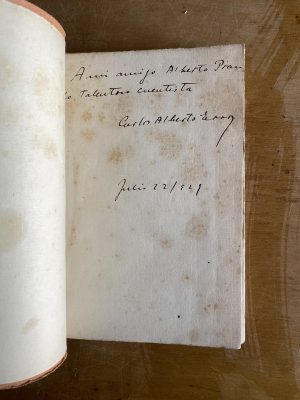 A mi amigo Alberto Pran
do, talentoso cuentista
Carlos Alberto Erro
Julio 22/929